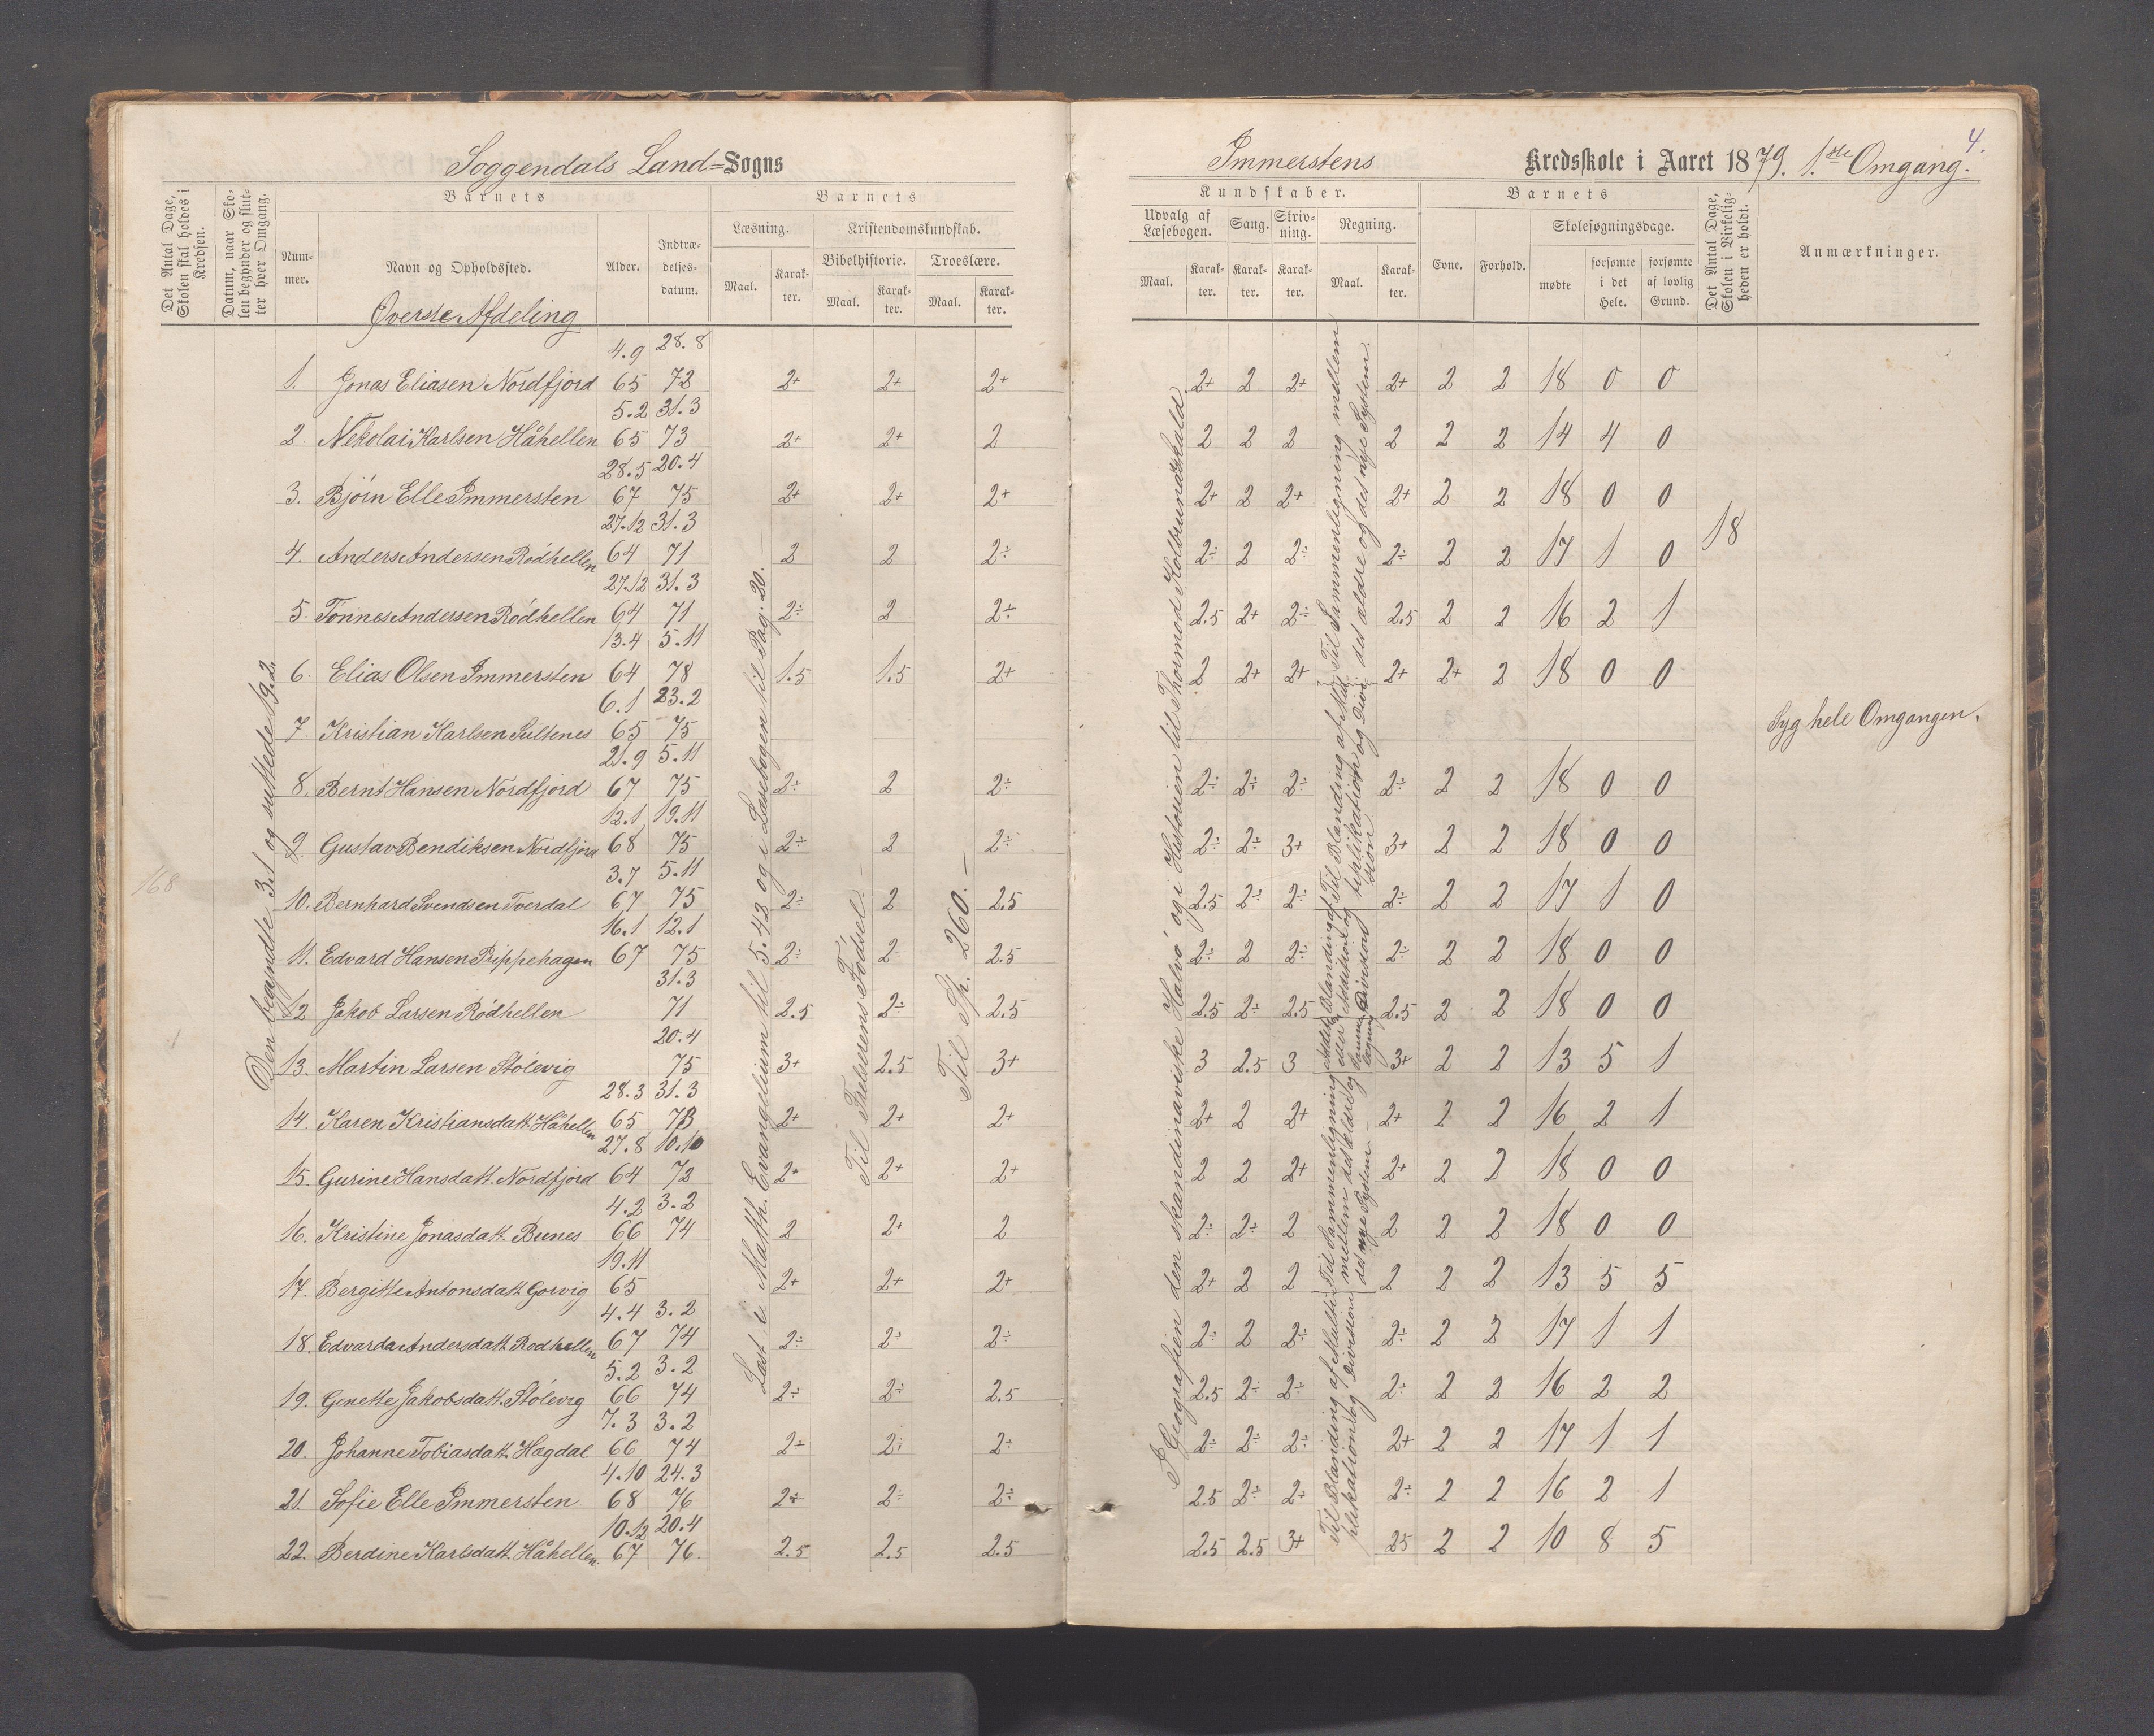 Soggendals Land=Sogns
Immerstens Kredsskole i Aaret 1879. 1.ste Omgang.
4.
Det Antal Dage, Skolen skal holdes i Kredsen.
Datum, naar Skolen begynder og slutter hver Omgang.
Barnets
Nummer.
Navn og Opholdssted.
Alder.
Indtrædelsesdatum.
Barnets
Læsning.
Maal.
Karakter.
Kristendomskundskab.
Bibelhistorie.
Maal.
Karakter.
Troeslære.
Maal.
Karakter.
Kundskaber.
Udvalg af Læsebogen.
Maal.
Karakter.
Sang.
Karakter.
Skrivning.
Karakter.
Regning.
Maal.
Karakter.
Barnets
Evne.
Forhold.
Skolesøgningsdage.
mødte
forsømte i det Hele.
forsømte af lovlig Grund.
Det Antal Dage, Skolen i Virkeligheden er holdt.
Anmærkninger.
Øverste Afdeling
1. Jonas Eliasen Nordfjord 4.9 65 28.8 72 2+ 2+ 2+ 2+ 2 2+ 2+ 2 2 18 0 0
2. Nekolai Karlsen Håhellen 5.2 65 31.3 73 2+ 2+ 2 2 2 2 2 2 2 14 4 0
3. Bjørn Elle Immersten 28.5 67 20.4 75 2+ 2+ 2+ 2+ 2 2+ 2+ 2 2 18 0 0
4. Anders Andersen Rødhellen 27.12 64 31.3 71 2 2 2÷ 2÷ 2 2÷ 2÷ 2 2 17 1 0
18
5. Tønnes Andersen Rødhellen 27.12 64 31.3 71 2÷ 2 2÷ 2.5 2+ 2÷ 2.5 2 2 16 2 1
6. Elias Olsen Immersten 13.4 64 5.11 78 1.5 1.5 2+ 2 2+ 2+ 2+ 2+ 2 18 0 0
7 Kristian Karlsen Sultenes 6.1 65 23.2 75 Syg hele Omgangen.
8. Bernt Hansen Nordfjord 21.9 67 5.11 75 2÷ 2 2÷ 2÷ 2÷ 2÷ 2÷ 2 2 18 0 0
9 Gustav Bendiksen Nordfjord 12.1 68 19.11 75 2÷ 2 2÷ 2÷ 2÷ 3+ 3+ 2 2 18 0 0
10. Bernhard Svendsen Tverdal 3.7 67 5.11 75 2÷ 2 2.5 2.5 2÷ 2÷ 2÷ 2 2 17 1 0
11. Edvard Hansen Rippehagen 16.1 67 12.1 75 2÷ 2 2.5 2÷ 2 2÷ 2÷ 2 2 18 0 0
12 Jakob Larsen Rødhellen 31.3 71 2.5 2÷ 2.5 2.5 2÷ 2.5 2.5 2 2 18 0 0
13. Martin Larsen Stølevig 20.4 75 3+ 2.5 3+ 3 2.5 3 3+ 2 2 13 5 1
14. Karen Kristiansdatt. Håhellen 28.3 65 31.3 73 2+ 2+ 2+ 2+ 2 2+ 2+ 2 2 16 2 1
15. Gurine Hansdatt. Nordfjord 27.8 64 10.10 72 2+ 2+ 2+ 2 2 2+ 2+ 2 2 18 0 0
16. Kristine Jonasdatt. Bunes 4.2 66 3.2 74 2 2+ 2 2÷ 2÷ 2 2 2 2 18 0 0
17. Bergitte Antonsdatt. Gorvig 19.11 65 2+ 2+ 2+ 2+ 2 2 2 2 2 13 5 5
18. Edvarda Andersdatt. Rødhellen 4.4 67 3.2 74 2÷ 2÷ 2÷ 2÷ 2 2÷ 2÷ 2 2 17 1 1
19. Genette Jakobsdatt. Stølevig 5.2 66 3.2 74 2÷ 2÷ 2.5 2.5 2÷ 2÷ 2÷ 2 2 16 2 2
20. Johanne Tobiasdatt. Hagdal 7.3 66 3.2 74 2÷ 2÷ 2÷ 2÷ 2÷ 2÷ 2+ 2 2 17 1 1
21. Sofie Elle Immersten 4.10 68 24.3 76 2÷ 2÷ 2÷ 2.5 2÷ 2÷ 2÷ 2 2 16 2 1
22. Berdine Karlsdatt. Håhellen. 10.12 67 20.4 76. 2.5 2.5 2.5 2.5 2.5 3+ 25 2 2 10 8 5
168
Den begyndte 3.1 og sluttede 19.2
Læst i Matth. Evangelium til 5.42 og i Læsebogen til Pag. 20. —
Til Frelserens Fødsel. —
Til Sp. 260. —
I Geografien den skandinaviske Halvø og i Historien til Thormod Kolbrunarskald.
Til Blanding af Multiplikation og Division
Til Sammenligning mellem det ældre og det nye System.
Til Blanding af Multiplikation og Division
Til Sammenligning mellem det ældre og det nye System